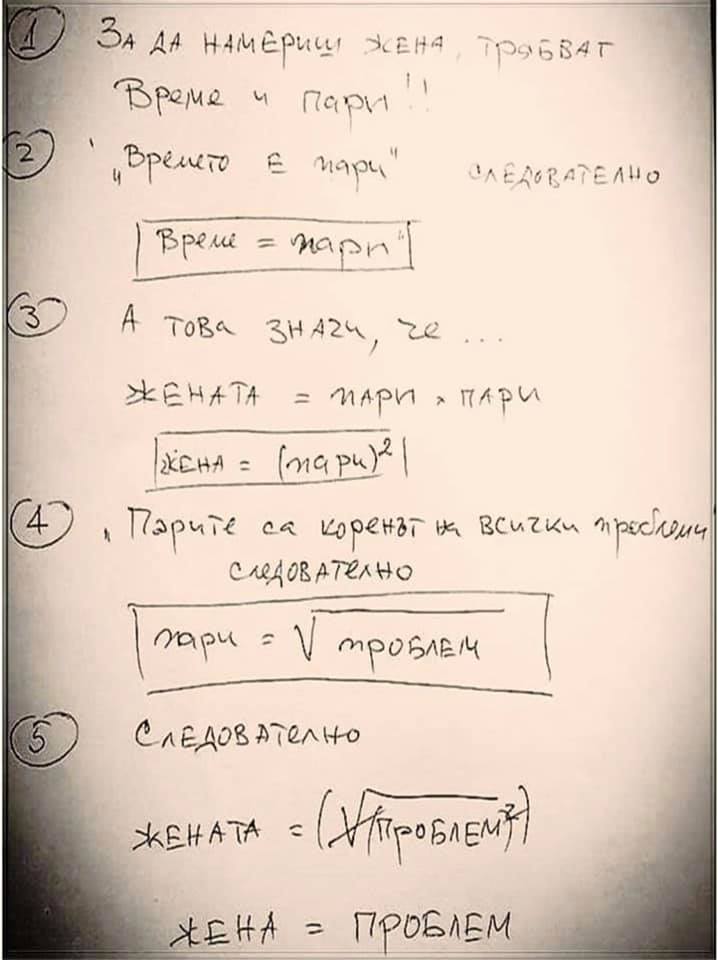 1 За да намериш жена, трябват
Време и пари!!
2 "Времето е пари" следователно
Време = пари"
3 А това значи, че ...
Жената = пари × пари
Жена = (пари)²
4 „Парите са коренът на всички проблеми"
следователно
пари = √проблем
5 Следователно
Жената = (√проблем)²
Жена = проблем